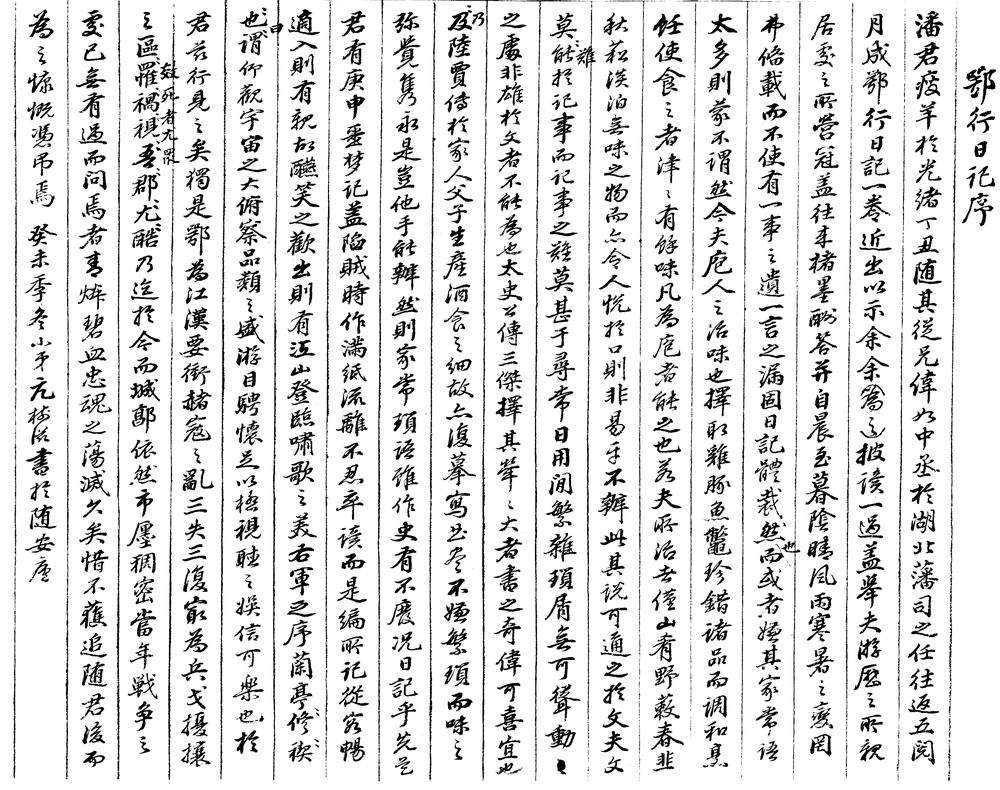 鄂行日记序
潘君疫羊於光绪丁丑随其從兄偉如中丞於湖北藩司之任往返五閲
月成鄂行日記一卷近出以示余余為之披讀一過蓋舉夫游歷之所親
居處之所營冠盖往来楮墨酬答并自晨至暮陰晴風雨寒暑之變罔
弗備載而不使有一事之遺一言之漏固日記體裁然也而或者嫌其家常语
太多則蒙不謂然今夫庖人之治味也擇取雞豚魚鼈珍錯诸品而調和烹
飪使食之者津之有餘味凡為庖者能之也若夫所治者僅山肴野蔌春韭
秋菘淡泊無味之物而亦令人悦於口則非易乎不辨此其説可通之於文夫文
莫難於記事而記事之難莫甚于尋常日用間繁雜瑣屑無可聳動
之處非雄於文者不能為也太史公傳三傑擇其犖之大者書之奇偉可喜宜也
乃及陸賈傳於家人父子生産酒食之細故亦復摹寫曲盡不嫌繁瑣而味之
弥覺隽永是豈他手能辨然則家常瑣語雖作史有不廢况日記乎先是
君有庚申噩梦記盖陷賊時作满紙流離不忍卒讀而是编所记從容暢
適入則有親故醼笑之歡出則有江山登臨嘯歌之美右軍之序蘭亭修禊
也曰謂仰觀宇宙之大俯察品類之盛游目騁懷足以極視聽之娱信可樂也於
君兹行見之矣獨是鄂為江漢要衝赭寇之亂三失三復最為兵戈擾攘
之區罹禍視吾郡尤酷殺死者尤眾乃迄於今而城郭依然市廛稠密當年戰争之
處已無有過而問焉者青燐碧血忠魂之蕩滅久矣惜不獲追随君後而
為之慷慨憑吊焉 癸未季冬小弟亢樹滋書於随安廬